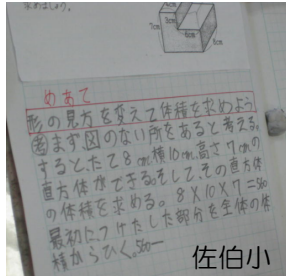 求めましょう。
7cm
3cm
6cm
めあて
形の見方を変えて体積を求めよう
考まず図のない所をあると考える。
すると、たて8cm横10cm、高さ7cmの
直方体ができる。そして、その直方体
の体積を求める。8×10×7=560
最初につけたした部分を全体の体
積からひく。560ー
佐伯小